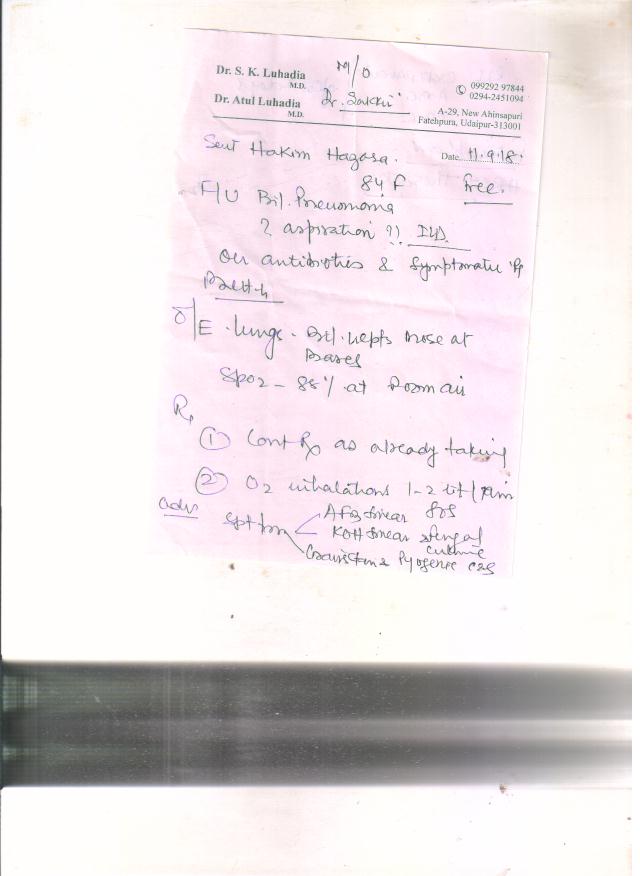 Dr. S. K. Luhadia
M.D.
Dr. Atul Luhadia
M.D.
M/O
Dr.
099292 97844
0294-2451094
A-29, New Ahinsapuri
Fatehpura, Udaipur-313001
Date 11.9.18.
Hakim
84 F free.
F/U Bil. Pneumonia
? aspiration ?? ILD.
on antibiotics & Symptomatic
O/E. Lungs. Bil. more at
Bases
SpO2 - 88% at Room air
Rx
① Cont Rx as already taking
② O2 inhalations 1-2 lit/min
adv
Sptm AFB smear
KOH smear & fungal
culture
Gram stain & Pyogenic c&s